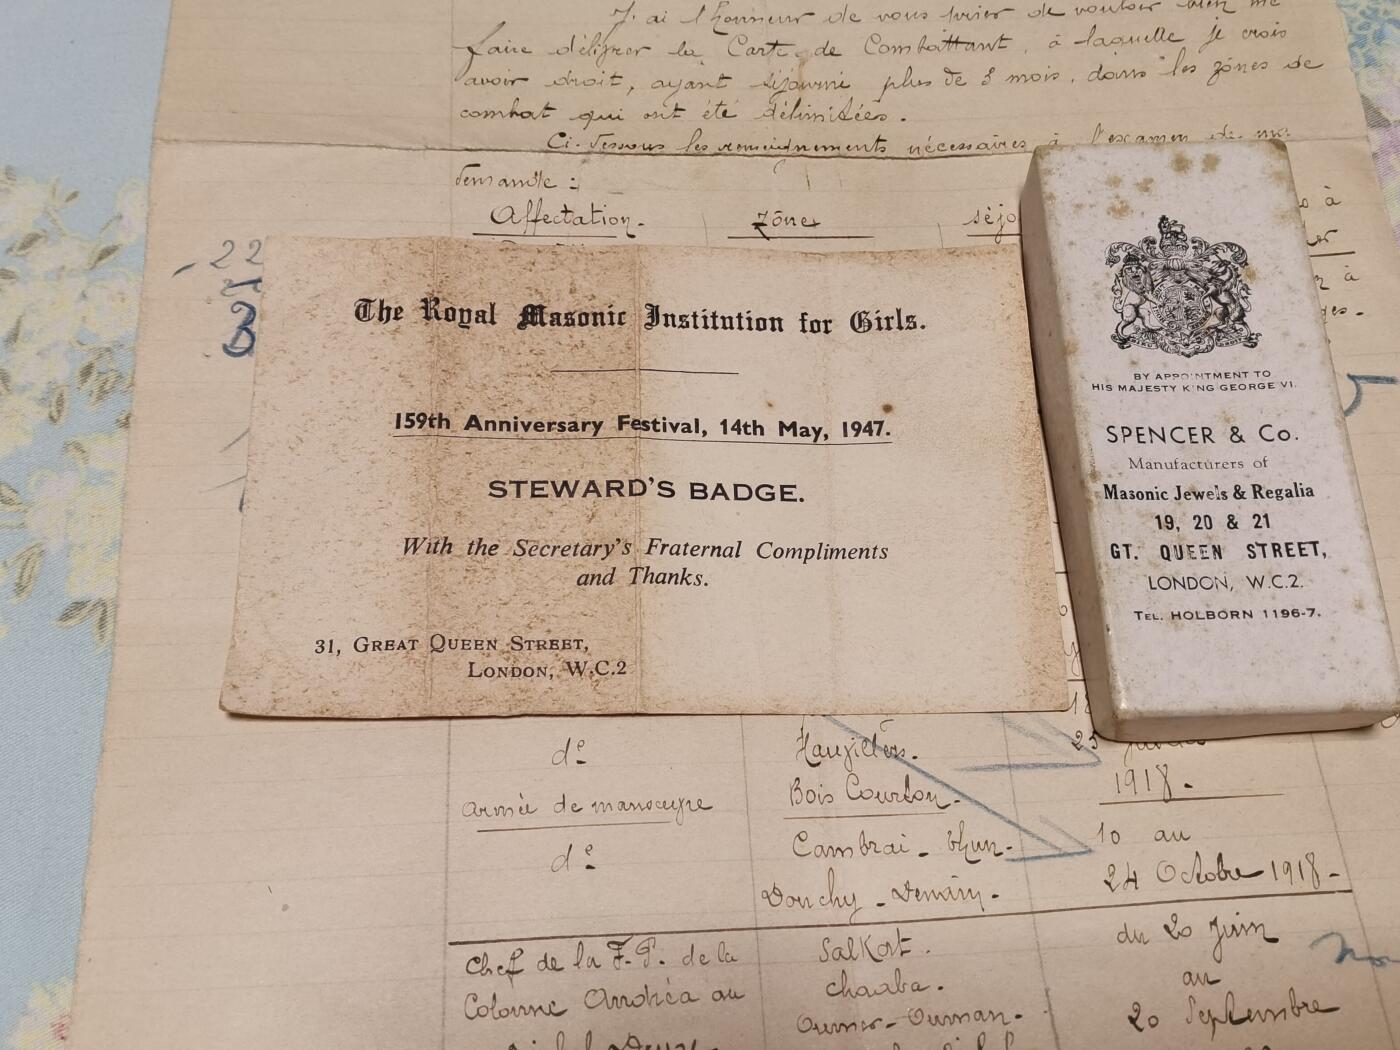 J'ai l'honneur de vous prier de vouloir bien me
faire délivrer la Carte de Combattant, à laquelle je crois
avoir droit, ayant séjourné plus de 3 mois, dans les zônes de
combat qui ont été délimitées.
Ci-dessous les renseignements nécessaires à l'examen de ma
demande :
Affectation. zône séjo
22
3
The Royal Masonic Institution for Girls.
159th Anniversary Festival, 14th May, 1947.
STEWARD'S BADGE.
With the Secretary's Fraternal Compliments
and Thanks.
31, GREAT QUEEN STREET,
LONDON, W.C.2
BY APPOINTMENT TO
HIS MAJESTY KING GEORGE VI.
SPENCER & Co.
Manufacturers of
Masonic Jewels & Regalia
19, 20 & 21
GT. QUEEN STREET,
LONDON, W.C.2.
TEL. HOLBORN 1196-7.
dº 25
armée de manoeuvre Bois Courbon. 1918.
dº Cambrai - 10 au
Douchy - Denain. 24 Octobre 1918 -
Chef de la de la Salkat. du 20 Juin
Colonne Andréa au chaaba. au
Oumar-Ouman. 20 Septembre